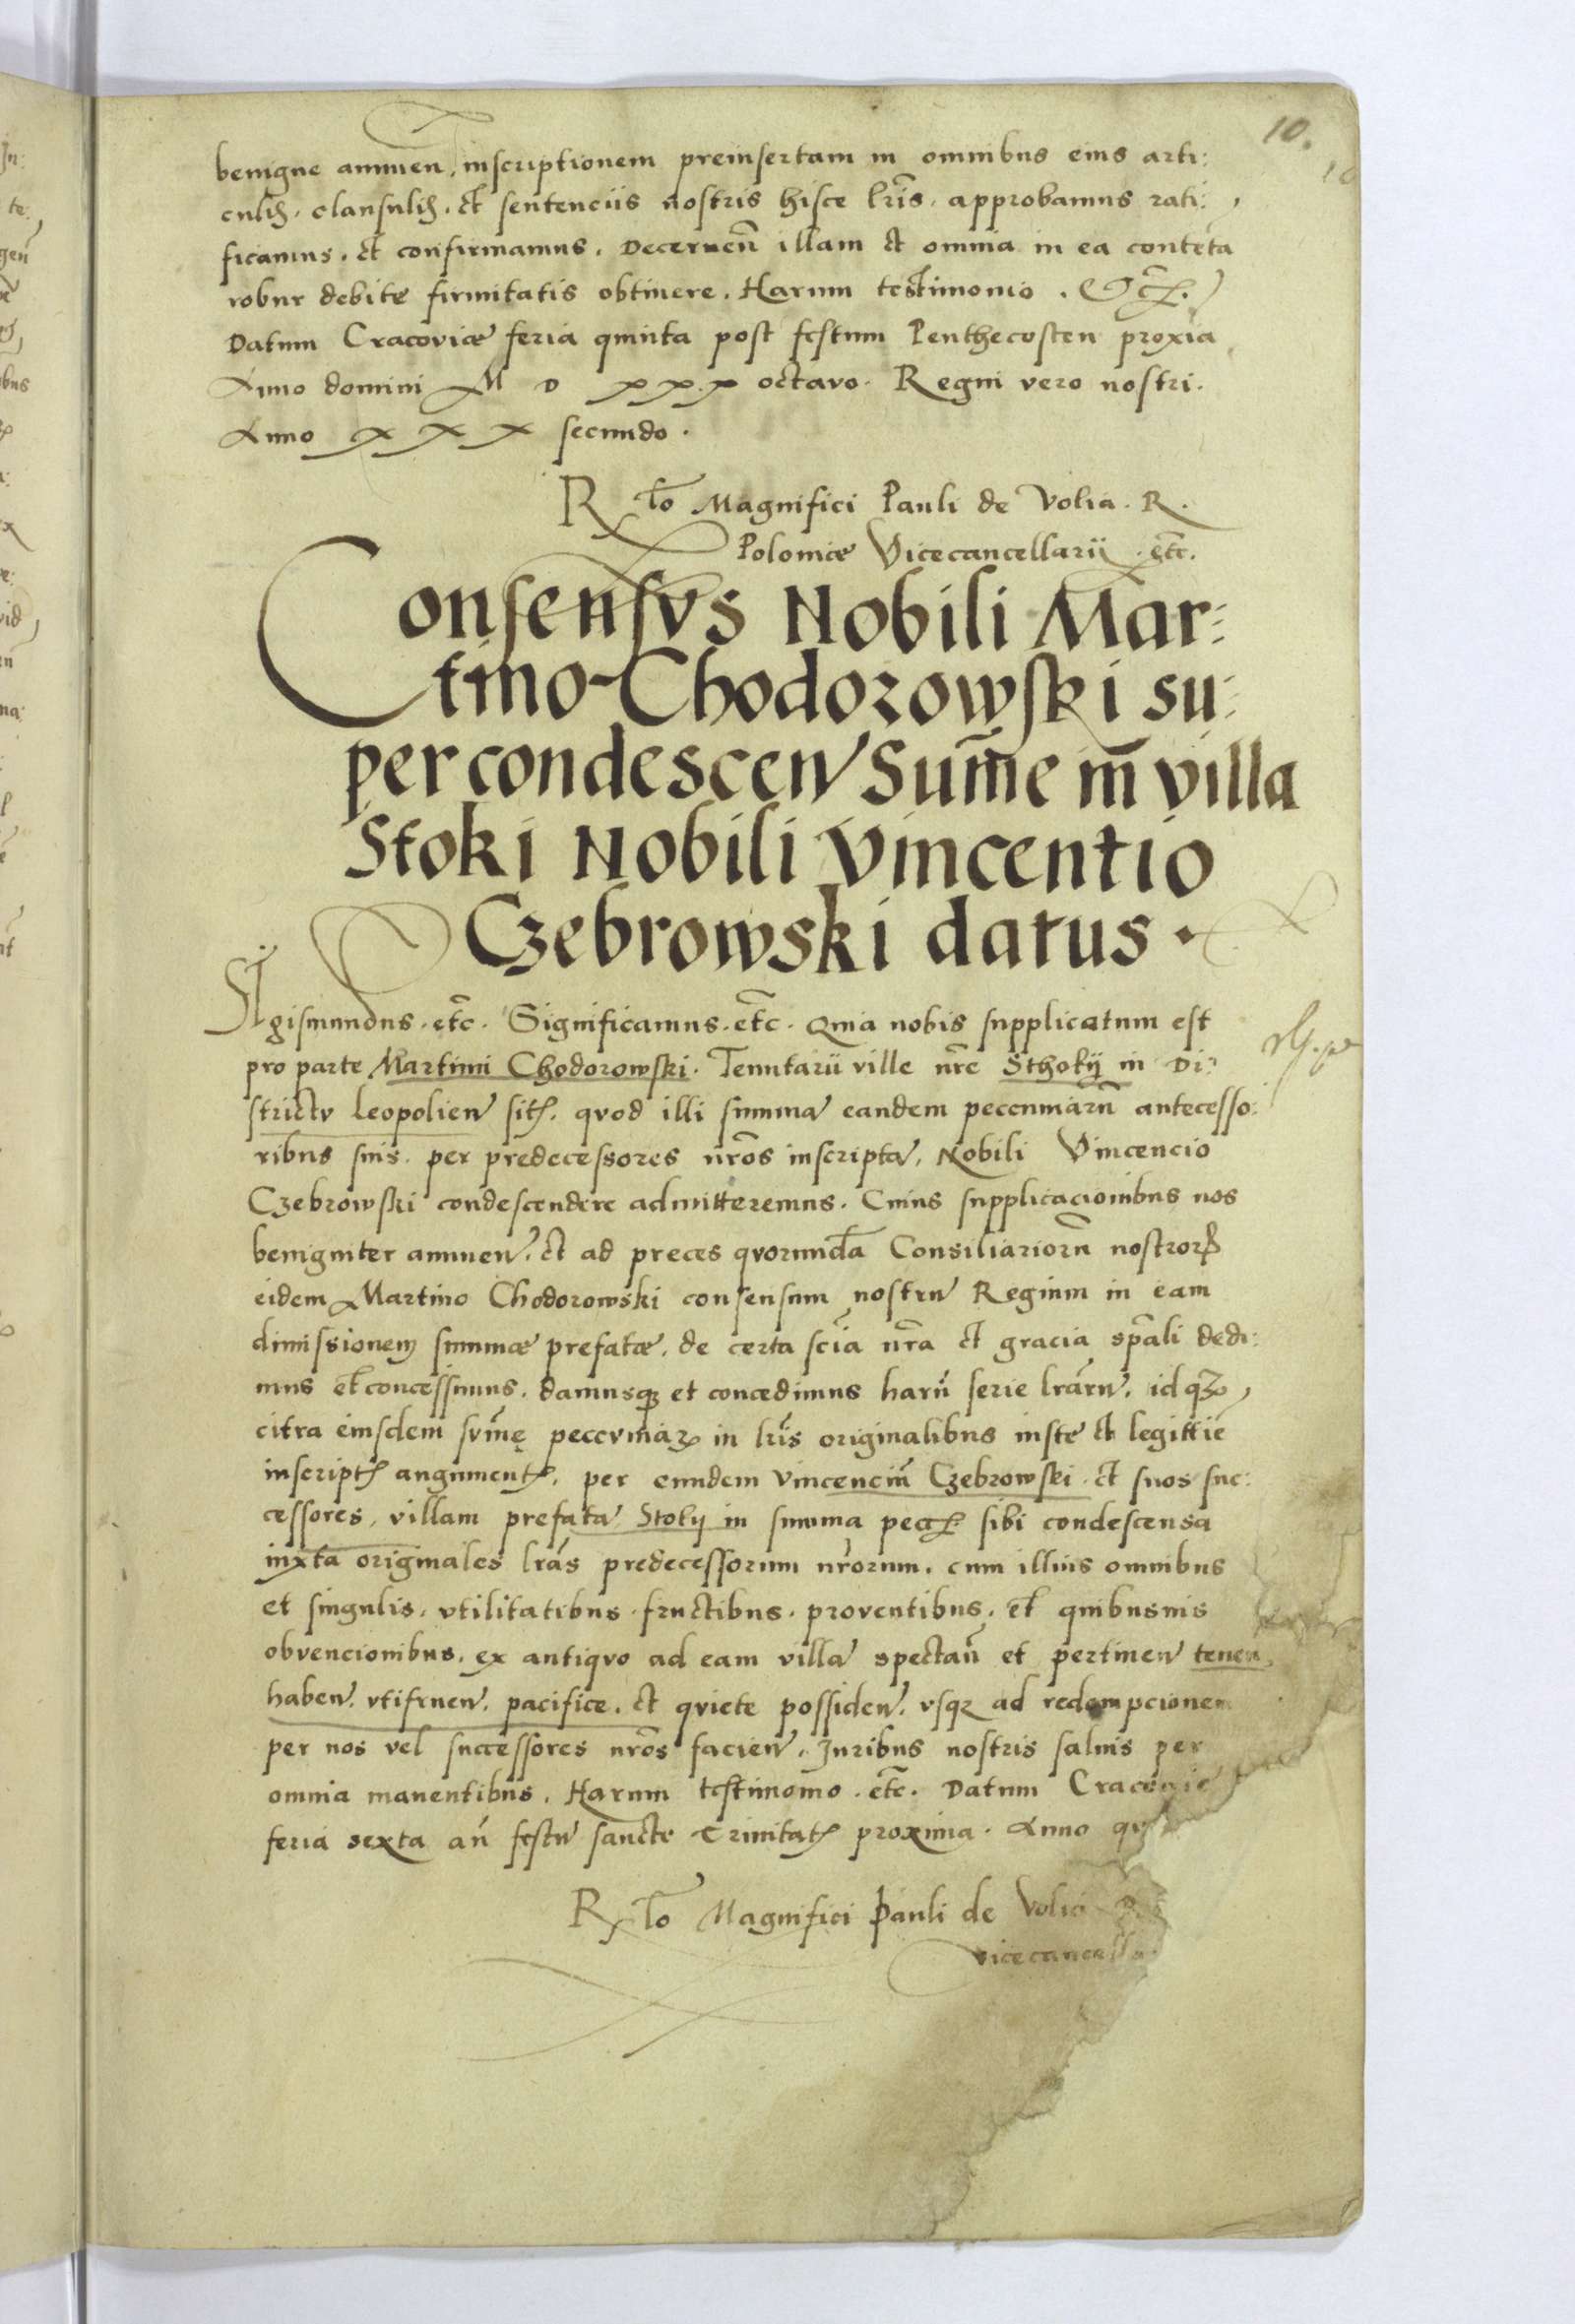 10.
10
benigne annuen, inscriptionem preinsertam in omnibus eius arti:
culis, clausulis, et sentenciis nostris hisce lr̃is. approbamus rati:
ficamus, et confirmamus. Decernen̄ illam et omnia in ea contēta
robur debite firmitatis obtinere. Harum testimonio. Etc̄.
Datum Cracoviæ feria quinta post festum Penthecosten proxīa
Anno domini M D xxx octavo. Regni vero nostri.
Anno xxx secundo.
Rtō Magnifici Pauli de Volia. R.
Poloniæ Vicecancellarii. etc̄.
Consensvs Nobili Mar:
tino Chodorowski su:
per condescen Sum̄e in̄ villa
Stoki Nobili Vincentio
Czebrowski datus.
Sigismundus. etc̄. Significamus. etc̄. Quia nobis supplicatum est
pro parte Martini Chodorowski. Tenutarii ville nr̄e Sthokij in Di:
strictv Leopolien sit. qvod illi summa eandem peccuniarū antecesso:
ribus suis. per predecessores nr̄os inscripta, Nobili Vincencio
Czebrowski condescendere admitteremus. Cuius supplicacionibus nos
benigniter annuen, et ad preces qvorundā Consiliariorū nostror
eidem Martino Chodorowski consensum nostru Regium in eam
dimissionem summæ prefatæ, de certa scīa nr̄a et gracia spāli dedi:
mus et concessimus. damusq et concedimus harū serie lrāru, id q
citra eiusdem svm̄ę peccvniar in lr̄is originalibus iuste et legittīe
inscript augument, per eundem Vincenciū Czebrowski et suos suc:
cessores, villam prefata Stokij in summa pecc sibi condescensa
iuxta originales lrās predecessorum nr̄orum. cum illius omnibus
et singulis, vtilitatibus. fructibus. proventibus, et quibusuis
obvencionibus, ex antiqvo ad eam villa spectan̄ et pertinen tenen,
haben, vtifruen, pacifice, et qviete possiden, vsq ad redempcionem
per nos vel successores nr̄os facien, Iuribus nostris saluis per
omnia manentibus. Harum testimonio. etc̄. Datum Cracovie
feria sexta an̄ festu sancte Trinitat proxima. Anno
Rtō Magnifici Pauli de Volia
vicecancella